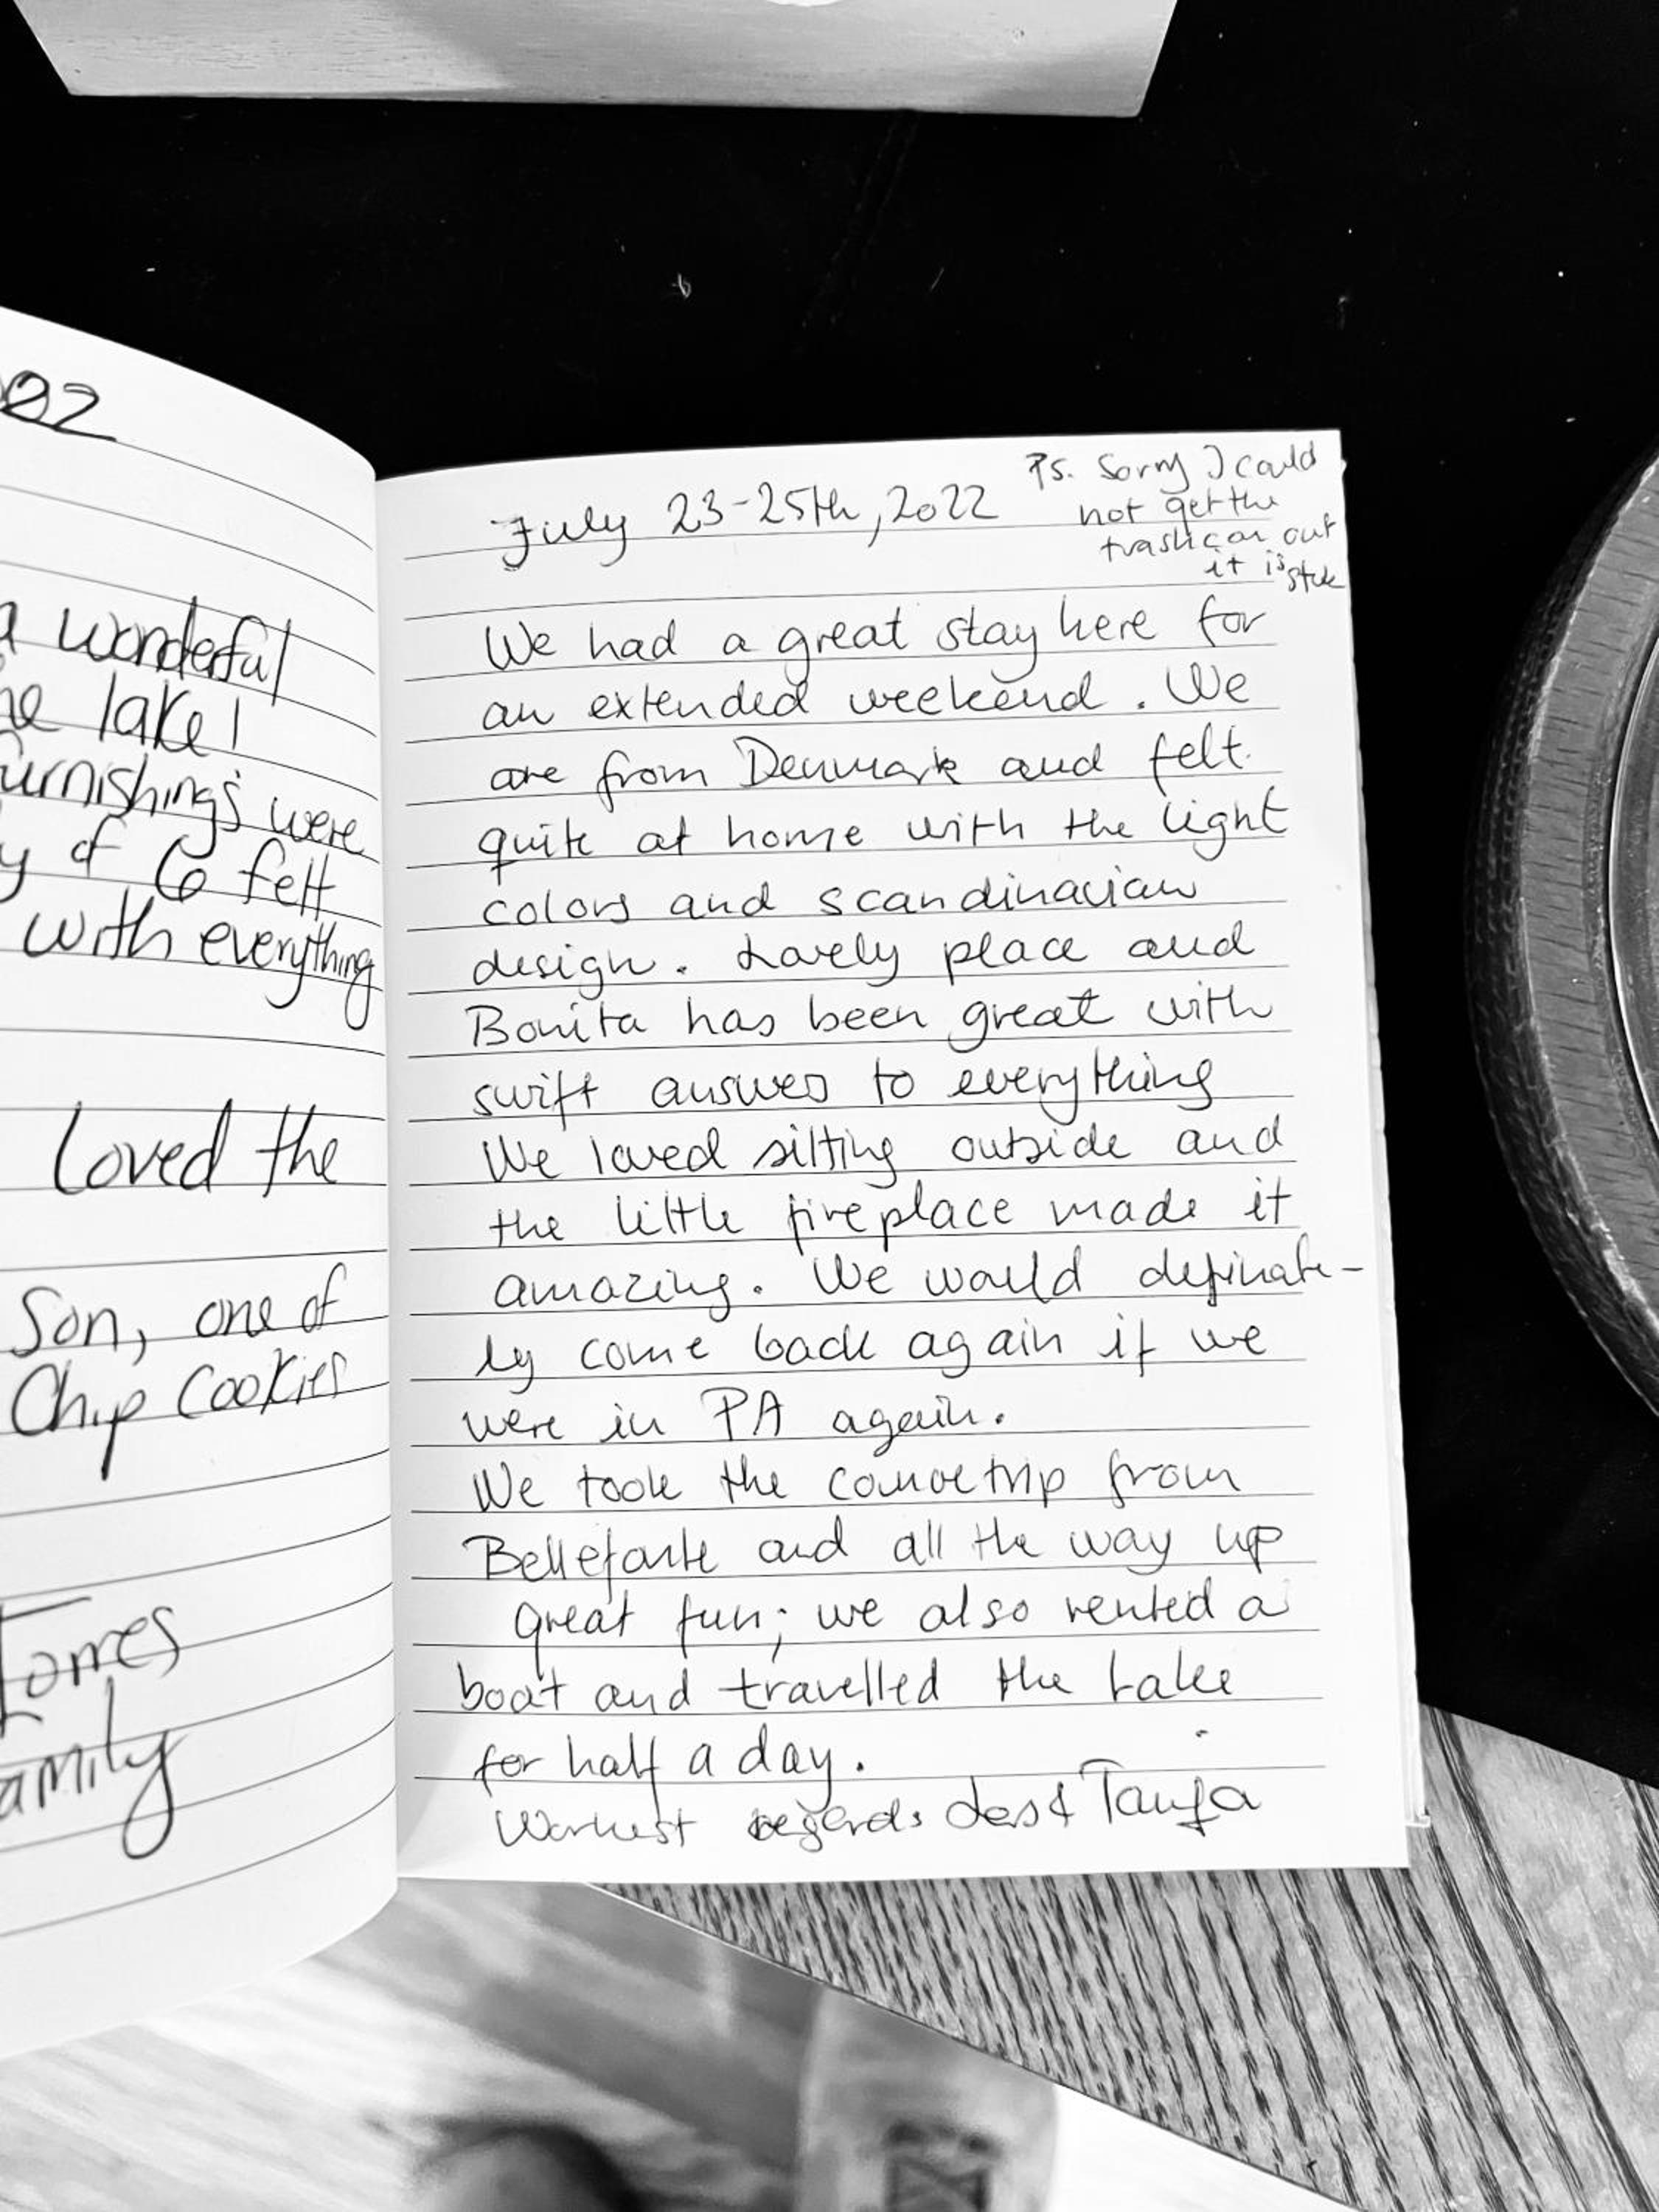 02
a wonderful
he lake!
furnishings were
y of 6 felt
with everything
Loved the
Son, one of
Chip Cookies
Torres
amily
July 23-25th, 2022
Ps. Sorry I could
not get the
trashcan out
it is stuc
We had a great stay here for
an extended weekend. We
are from Denmark and felt
quite at home with the light
colors and scandinavian
design. Lovely place and
Bonita has been great with
swift answers to everything
We loved sitting outside and
the little fireplace made it
amazing. We would definate-
ly come back again if we
were in PA again.
We took the canoetrip from
Bellefonte and all the way up
great fun; we also rented a
boat and travelled the Lake
for half a day.
Warmest regards & Tanja